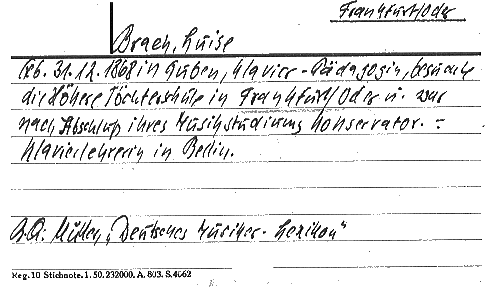 Frankfurt/Oder
Braeh, Luise
Geb. 31.12.1868 in Guben, Klavier-Pädagogin, besuchte
die Höhere Töchterschule in Frankfurt/Oder u. war
nach Abschluß ihres Musikstudiums Konservator.=
Klavierlehrerin in Berlin.
Müller, „Deutsches Musiker-Lexikon"
Reg. 10 Stichnote. 1. 50. 232000. A. 803. S. 4662